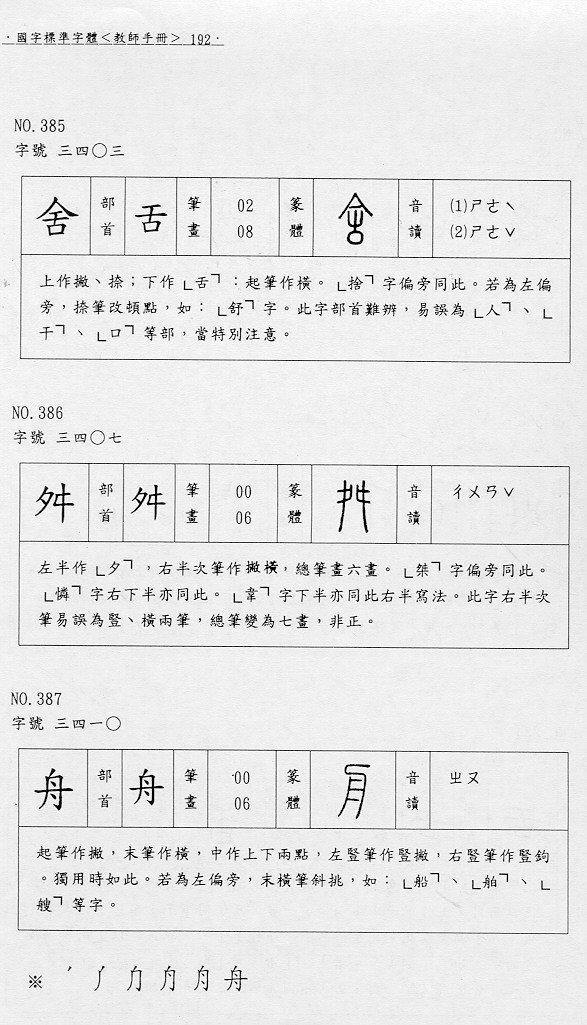 ·國字標準字體<教師手冊> 192·
NO.385
字號 三四〇三
舍 部首 舌 筆畫 02 08 篆體 舍 音讀 ⑴ㄕㄜˋ ⑵ㄕㄜˇ
上作撇、捺;下作「舌」:起筆作橫。「捨」字偏旁同此。若為左偏
旁,捺筆改頓點,如:「舒」字。此字部首難辨,易誤為「人」、「
干」、「口」等部,當特別注意。
NO.386
字號 三四〇七
舛 部首 舛 筆畫 00 06 篆體 舛 音讀 ㄔㄨㄢˇ
左半作「夕」,右半次筆作撇橫,總筆畫六畫。「桀」字偏旁同此。
「憐」字右下半亦同此。「韋」字下半亦同此右半寫法。此字右半次
筆易誤為豎、橫兩筆,總筆變為七畫,非正。
NO.387
字號 三四一〇
舟 部首 舟 筆畫 00 06 篆體 舟 音讀 ㄓㄡ
起筆作撇,末筆作橫,中作上下兩點,左豎筆作豎撇,右豎筆作豎鉤
。獨用時如此。若為左偏旁,末橫筆斜挑,如:「船」、「舶」、「
艘」等字。
※ 舟